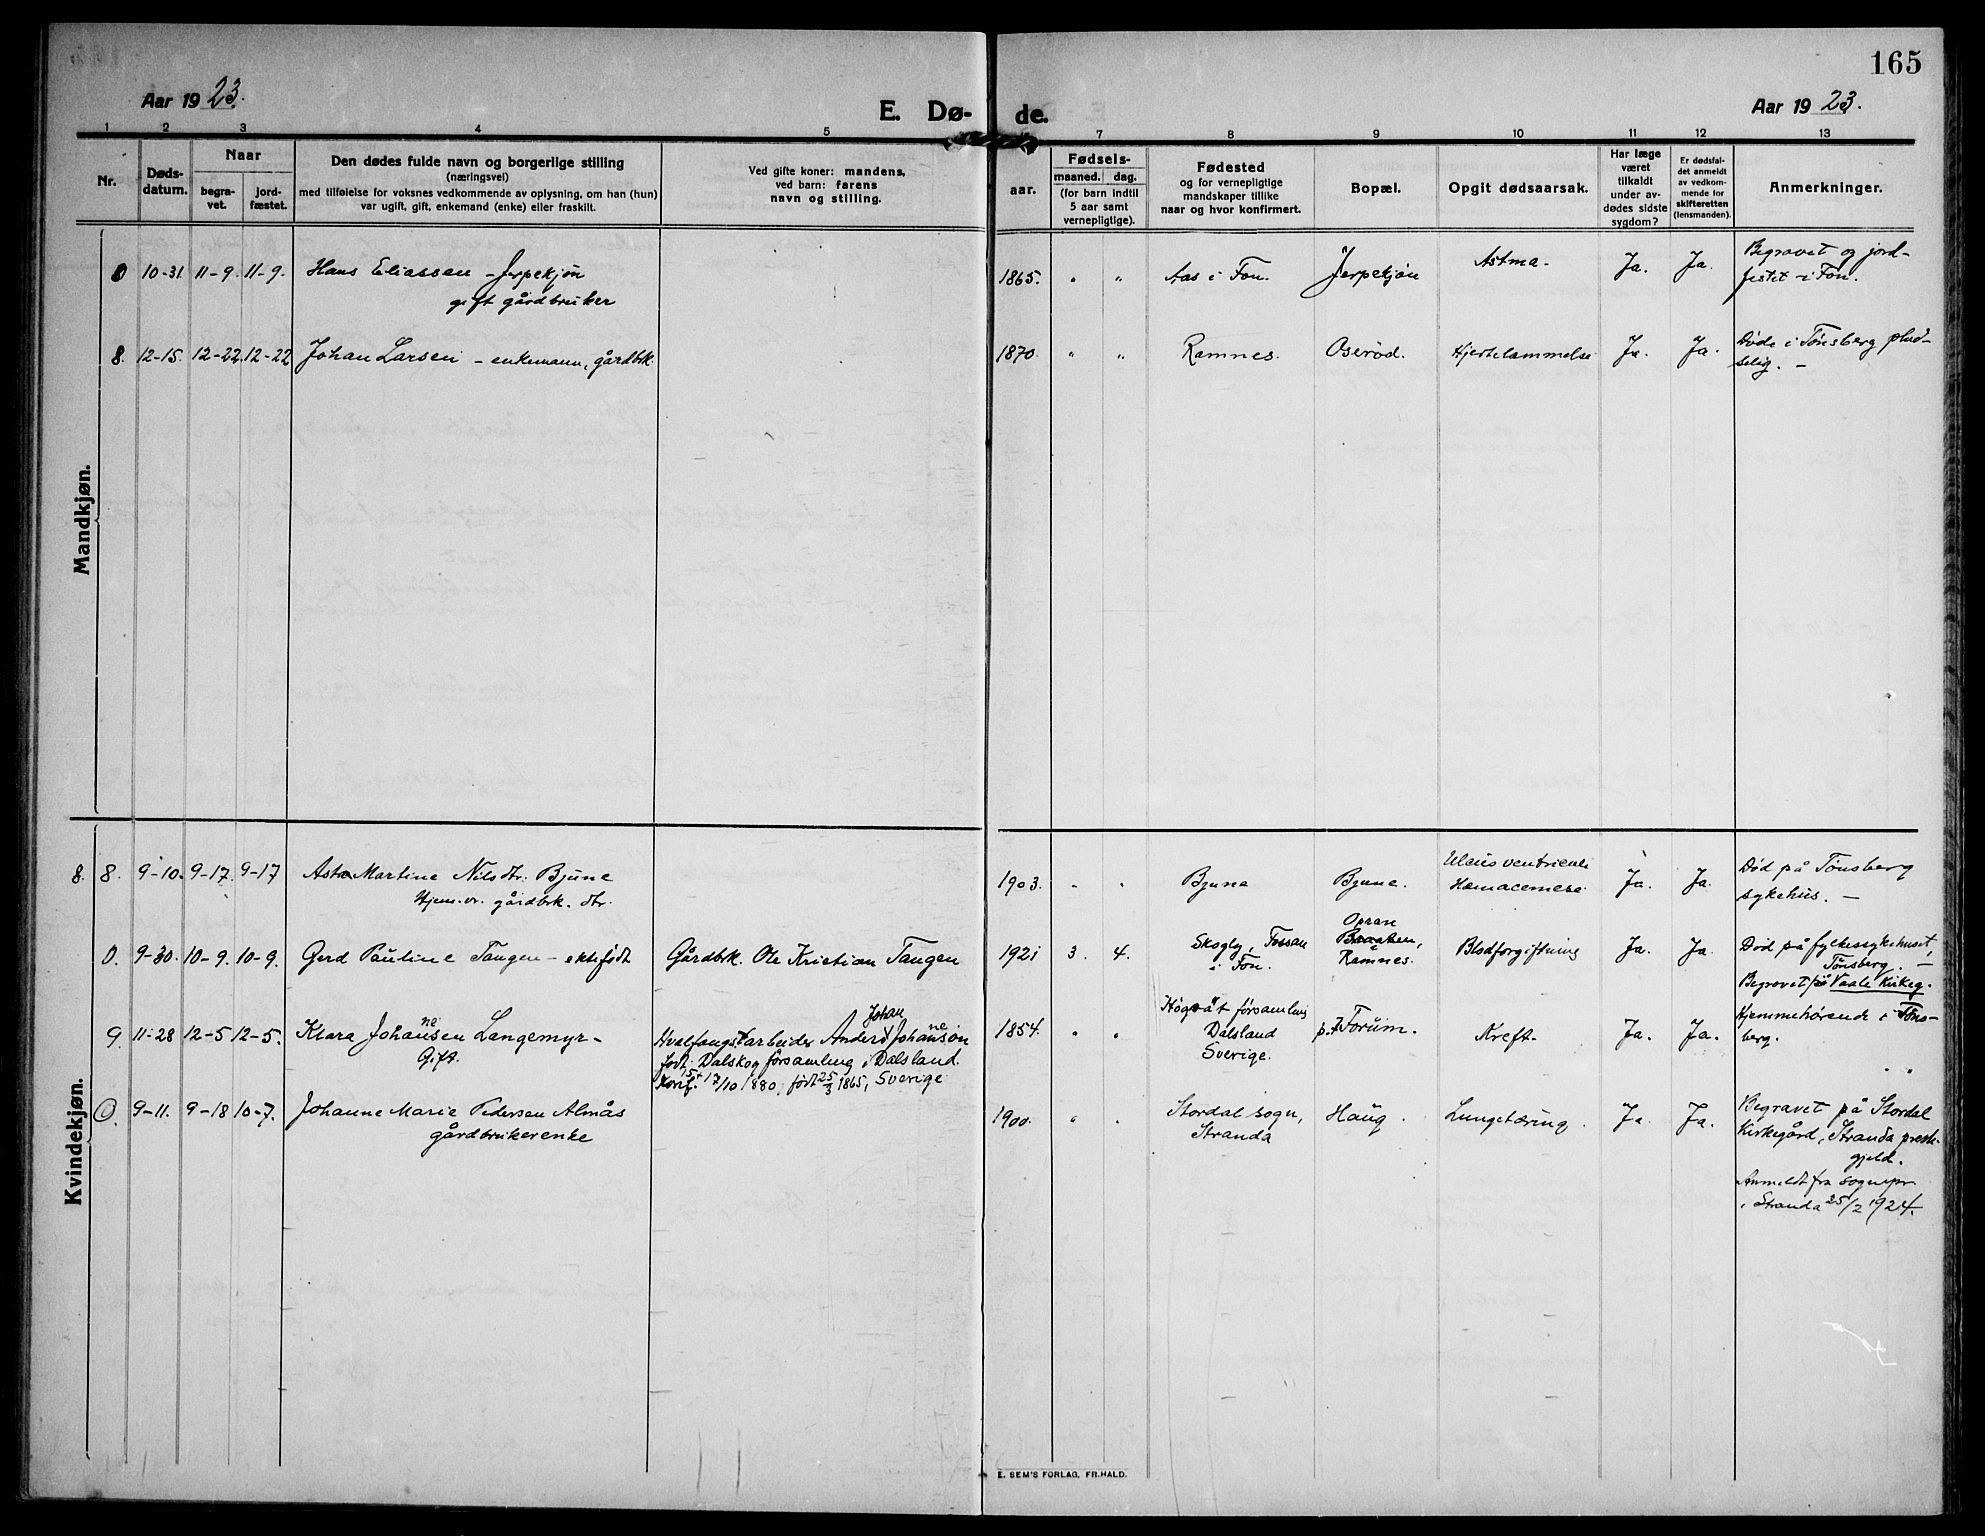 165
Aar 1923.
E. Dø-
de.
Aar 1923.
1 2 3 4 5 7 8 9 10 11 12 13
Nr.
Døds-
datum.
Naar
begra-
vet.
jord-
fæstet.
Den dødes fulde navn og borgerlige stilling
(næringsvei)
med tilføielse for voksnes vedkommende av oplysning, om han (hun)
var ugift, gift, enkemand (enke) eller fraskilt.
Ved gifte koner: mandens,
ved barn: farens
navn og stilling.
aar.
Fødsels-
maaned. dag.
(for barn indtil
5 aar samt
vernepligtige).
Fødested
og for vernepligtige
mandskaper tillike
naar og hvor konfirmert.
Bopæl.
Opgit dødsaarsak.
Har læge
været
tilkaldt
under av-
dødes sidste
sygdom?
Er dødsfal-
det anmeldt
av vedkom-
mende for
skifteretten
(lensmanden).
Anmerkninger.
Mandkjøn.
0 10-31. 11-9. 11-9. Hans Eliassen - Jerpekjøn
gift gårdbruker
1865. " " Aas i Fon. Jerpekjøn Astma. Ja. Ja. Begravet og jord-
festet i Fon.
8. 12-15. 12-22. 12-22 Johan Larsen - enkemann, gårdbrk.
1870. " " Ramnes. Oserød. Hjertelammelse Ja. Ja. Døde i Tønsberg plud-
selig. -
Kvindekjøn.
8. 8. 9-10. 9-17. 9-17 Asta Martine Nilsdtr. Bjune
Hjem.v. gårdbrk. dtr.
1903. " " Bjune Bjune. Ulcus ventriculi
Hæmacemese. Ja. Ja. Død på Tønsberg
sykehus. -
0. 9-30. 10-9. 10-9. Gerd Pauline Tangen - ektefødt Gårdbrk. Ole Kristian Tangen
1921 3. 4. Skogly, Fossan
i Fon.
Opran
Braaten,
Ramnes.
Blodforgiftning Ja. Ja. Død på fylkessykehuset,
Tønsberg. -
Begravet på Vaale Kirkeg.
9. 11-28 12-5 12-5. Klara Johansen Langemyr -
ne
Gift.
Johan
Hvalfangstarbeider Anders Johanson
ne
født. Dalskog församling i Dalsland.
Konf. 17/10 1880, født 25/3 1865, Sverige
15
1854. " " församling
Dalsland
Sverige.
p.t. Forum. Kreft. Ja. Ja. Hjemmehørende i Tøns-
berg.
0. 9-11. 9-18 10-7. Johanne Marie Pedersen Almås
gårdbrukerenke
1900. " " Stordal sogn,
Stranda
Haug. Lungetæring. Ja. Ja. Begravet på Stordal
Kirkegård, Stranda preste-
gjeld.
Anmeldt fra sognepr.
i Stranda 25/2 1924.
E. SEM'S FORLAG, FR.HALD.